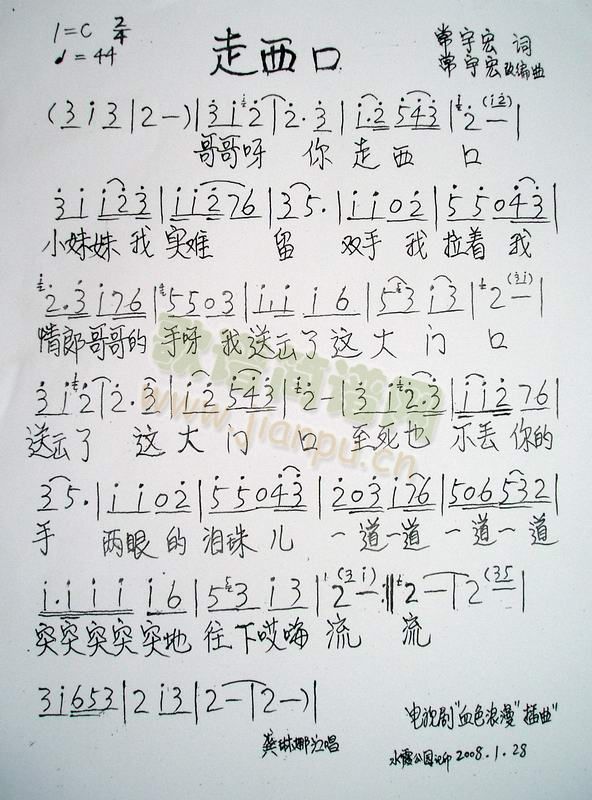 1=C 2/4
♩=44
走西口
常宇宏 词
常宇宏改编曲
(3 i 3 | 2 — ) | 3 i 2 | 2 . 3 | i . 2 5 4 3 | 2 — |
哥哥呀 你 走 西 口
3 i i 2 3 | i i 2 7 6 | 3 5 . | i i 0 2 | 5 5 0 4 3 |
小妹妹 我 实难 留 双手 我 拉着 我
2 . 3 i 7 6 | 5 5 0 3 | i . i i i 6 | 5 3 i 3 | 2 — |
情郎哥哥的 手呀 我送云了 这 大 门 口
3 i 2 | 2 . 3 | i i 2 5 4 3 | 2 — | 3 i 2 . 3 | i i 2 7 6 |
送云了 这 大 门 口 至死也 不丢 你的
3 5 . | i i 0 2 | 5 5 0 4 3 | 2 0 3 i 7 6 | 5 0 6 5 3 2 |
手 两眼 的 泪珠 儿 一道一道 一道一道
i . i i i i 6 | 5 3 i 3 | 2 — :‖ 2 — | 2 (3 5 |
突突突突突地 往下哎嗨 流 流
3 i 6 5 3 | 2 i 3 | 2 — | 2 — ) |
电视剧"血色浪漫"插曲"
龚琳娜演唱
2008.1.28
歌谱简谱网
www.jianpu.cn